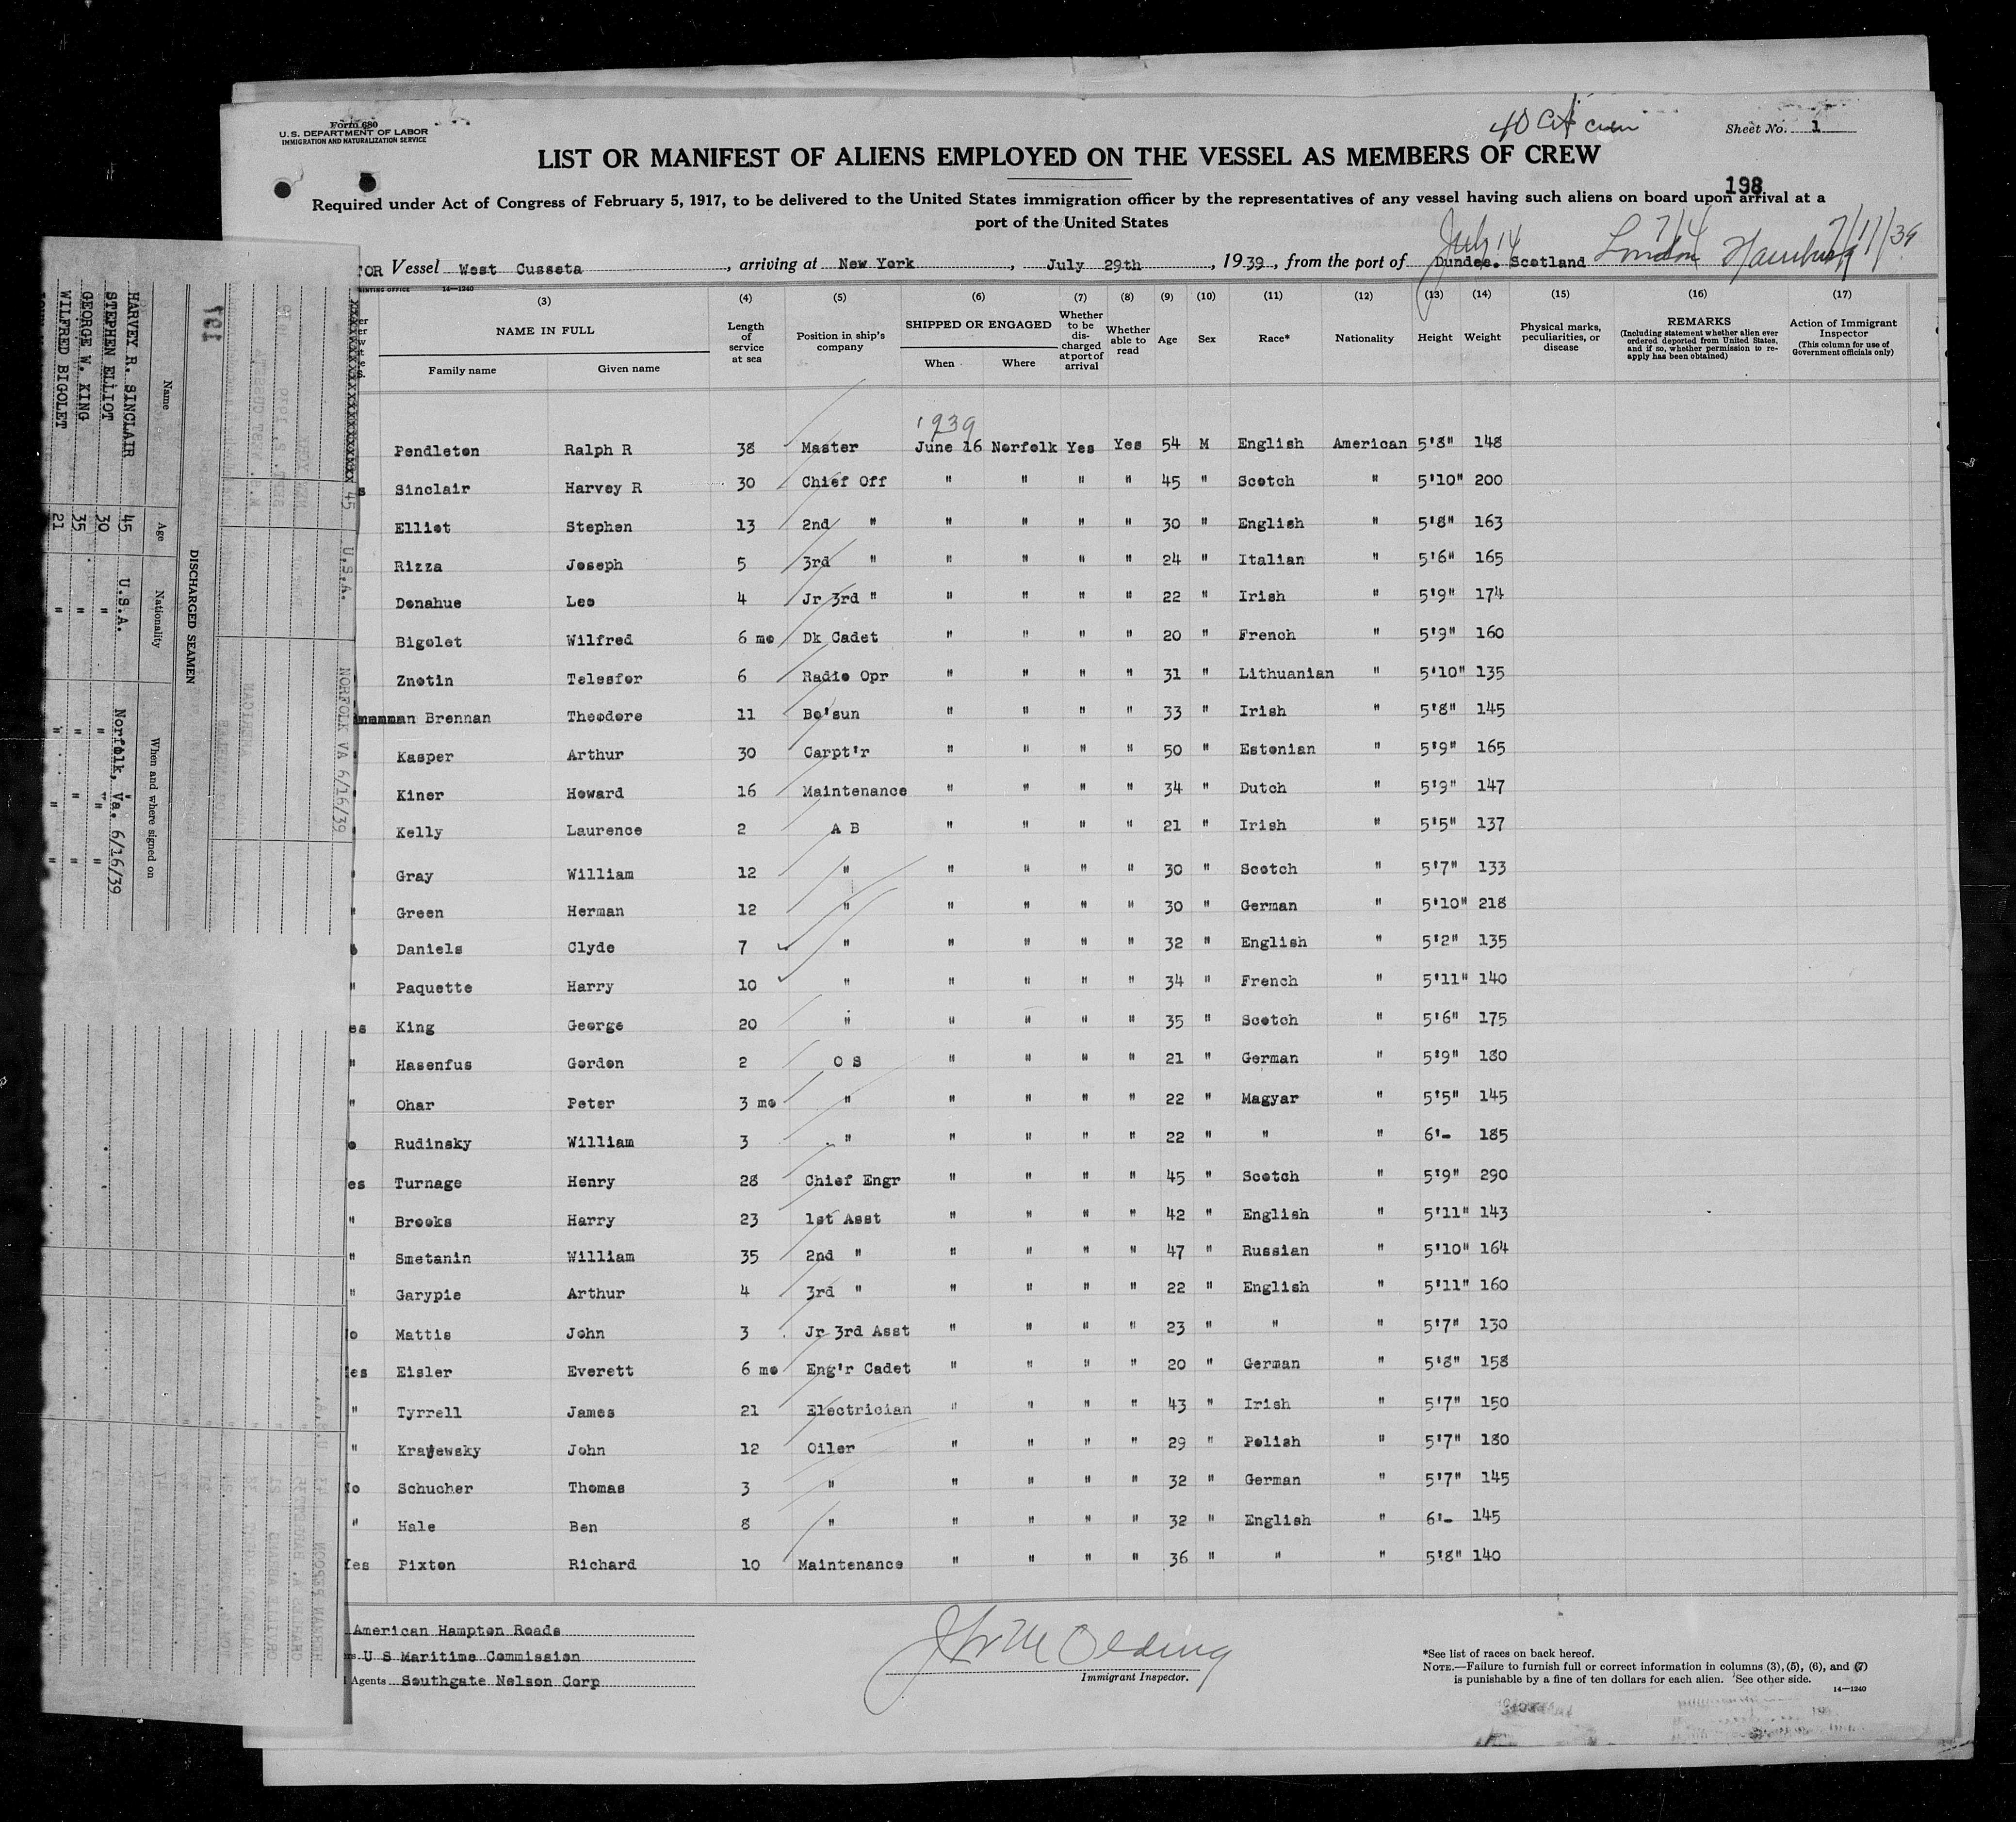 Form 680
U.S. DEPARTMENT OF LABOR
IMMIGRATION AND NATURALIZATION SERVICE
Sheet No. 1
LIST OR MANIFEST OF ALIENS EMPLOYED ON THE VESSEL AS MEMBERS OF CREW
198
Required under Act of Congress of February 5, 1917, to be delivered to the United States immigration officer by the representatives of any vessel having such aliens on board upon arrival at a
port of the United States
July 14 London 7/4 Hamburg 7/11/39
Vessel West Cusseta, arriving at New York, July 29th, 1939, from the port of Dundee. Scotland
(3) (4) (5) (6) (7) (8) (9) (10) (11) (12) (13) (14) (15) (16) (17)
NAME IN FULL
Family name Given name
Length of service at sea
Position in ship's company
SHIPPED OR ENGAGED
When Where
Whether to be discharged at port of arrival
Whether able to read
Age
Sex
Race*
Nationality
Height
Weight
Physical marks, peculiarities, or disease
REMARKS
(Including statement whether alien ever ordered deported from United States, and if so, whether permission to reapply has been obtained)
Action of Immigrant Inspector
(This column for use of Government officials only)
1939
Pendleton Ralph R 38 Master June 16 Norfolk Yes Yes 54 M English American 5'8" 148
Sinclair Harvey R 30 Chief Off " " " " 45 " Scotch " 5'10" 200
Elliot Stephen 13 2nd " " " " " 30 " English " 5'8" 163
Rizza Joseph 5 3rd " " " " " 24 " Italian " 5'6" 165
Donahue Leo 4 Jr 3rd " " " " " 22 " Irish " 5'9" 174
Bigolet Wilfred 6 mo Dk Cadet " " " " 20 " French " 5'9" 160
Znotin Telesfor 6 Radio Opr " " " " 31 " Lithuanian " 5'10" 135
Brennan Theodore 11 Bo'sun " " " " 33 " Irish " 5'8" 145
Kasper Arthur 30 Carpt'r " " " " 50 " Estonian " 5'9" 165
Kiner Howard 16 Maintenance " " " " 34 " Dutch " 5'9" 147
Kelly Laurence 2 A B " " " " 21 " Irish " 5'5" 137
Gray William 12 " " " " " 30 " Scotch " 5'7" 133
" Green Herman 12 " " " " " 30 " German " 5'10" 218
Daniels Clyde 7 " " " " " 32 " English " 5'2" 135
" Paquette Harry 10 " " " " " 34 " French " 5'11" 140
es King George 20 " " " " " 35 " Scotch " 5'6" 175
" Hasenfus Gordon 2 O S " " " " 21 " German " 5'9" 180
" Ohar Peter 3 mo " " " " " 22 " Magyar " 5'5" 145
o Rudinsky William 3 " " " " " 22 " " " 6'- 185
es Turnage Henry 28 Chief Engr " " " " 45 " Scotch " 5'9" 290
" Brooks Harry 23 1st Asst " " " " 42 " English " 5'11" 143
" Smetanin William 35 2nd " " " " " 47 " Russian " 5'10" 164
" Garypie Arthur 4 3rd " " " " " 22 " English " 5'11" 160
o Mattis John 3 Jr 3rd Asst " " " " 23 " " " 5'7" 130
es Eisler Everett 6 mo Eng'r Cadet " " " " 20 " German " 5'8" 158
" Tyrrell James 21 Electrician " " " " 43 " Irish " 5'7" 150
" Krajewsky John 12 Oiler " " " " 29 " Polish " 5'7" 180
o Schucher Thomas 3 " " " " " 32 " German " 5'7" 145
" Hale Ben 8 " " " " " 32 " English " 6'- 145
es Pixton Richard 10 Maintenance " " " " 36 " " " 5'8" 140
American Hampton Roads
U S Maritime Commission
Agents Southgate Nelson Corp
Immigrant Inspector.
*See list of races on back hereof.
NOTE.—Failure to furnish full or correct information in columns (3), (5), (6), and (7)
is punishable by a fine of ten dollars for each alien. See other side.
14—1240
191
DISCHARGED SEAMEN
Name Age Nationality When and where signed on
HARVEY R. SINCLAIR 45 U.S.A. Norfolk, Va. 6/16/39
STEPHEN ELLIOT 30 " " " "
GEORGE W. KING 35 " " " "
WILFRED BIGOLET 21 " " " "
45 U.S.A. NORFOLK VA 6/16/39